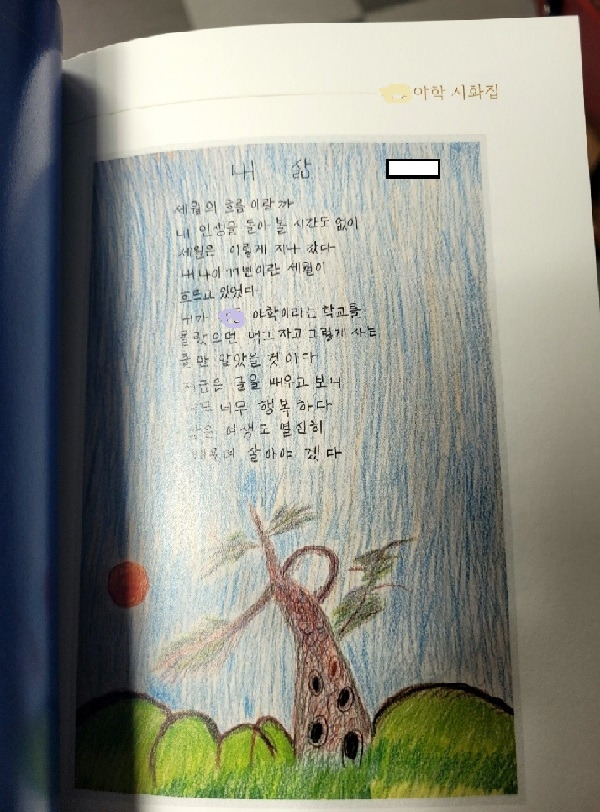 야학 시화집
내 삶
세월의 흐름이랄까
내 인생을 돌아 볼 시간도 없이
세월은 이렇게 지나 갔다
내 나이 세월이
흐르고 있었다
내가 야학이라는 학교를
몰랏으면 먹고 자고 그렇게 사는
줄만 알았을 것 이다
지금은 글을 배우고 보니
너무 행복 하다
여생도 열심히
살아야 겟다